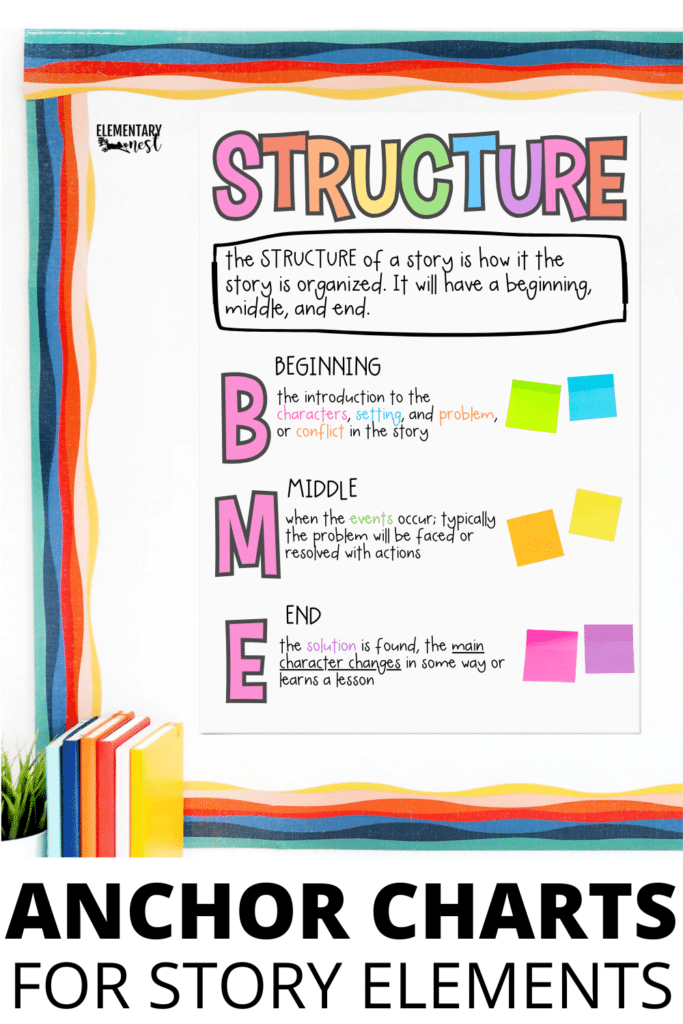 ELEMENTARY
nest
STRUCTURE
the STRUCTURE of a story is how it the
story is organized. It will have a beginning,
middle, and end.
B
BEGINNING
the introduction to the
characters, setting, and problem,
or conflict in the story
M
MIDDLE
when the events occur; typically
the problem will be faced or
resolved with actions
E
END
the solution is found, the main
character changes in some way or
learns a lesson
ANCHOR CHARTS
FOR STORY ELEMENTS